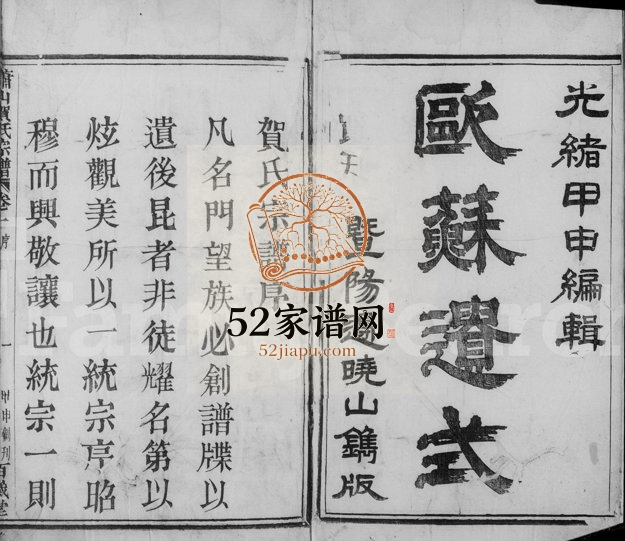 光緒甲申編輯
歐蘇遺式
暨陽 曉山鐫版
賀氏宗譜序
凡名門望族必創譜牒以
遺後昆者非徒耀名第以
炫觀美所以一統宗序昭
穆而興敬讓也統宗一則
蕭山賀氏宗譜 卷一 序
一
甲申創刊百歲堂
52家谱网
52jiapu.com